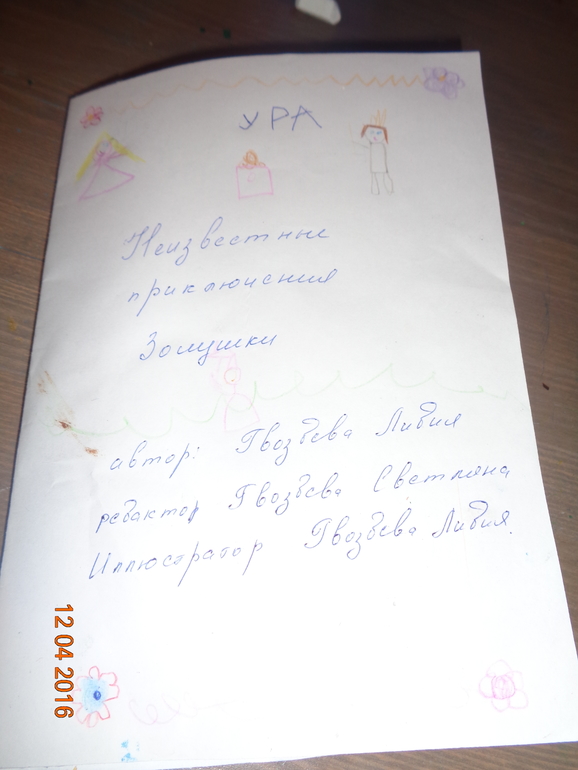 УРА
Неизвестные
приключения
Золушки
автор: Гвоздева Лидия
редактор Гвоздева Светлана
Иллюстратор Гвоздева Лидия.
12 04 2016